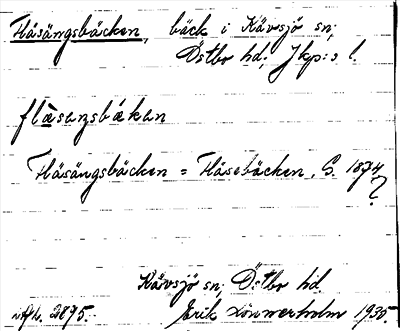 Flåsängsbäcken, bäck i Kävsjö sn;
Östbo hd; Jkp:s l.
flåsanzbäkan
Flåsängsbäcken = Flåsebäcken, S. 1874
?
Kävsjö sn; Östbo hd.
2895. Erik Lönnerholm 1935.